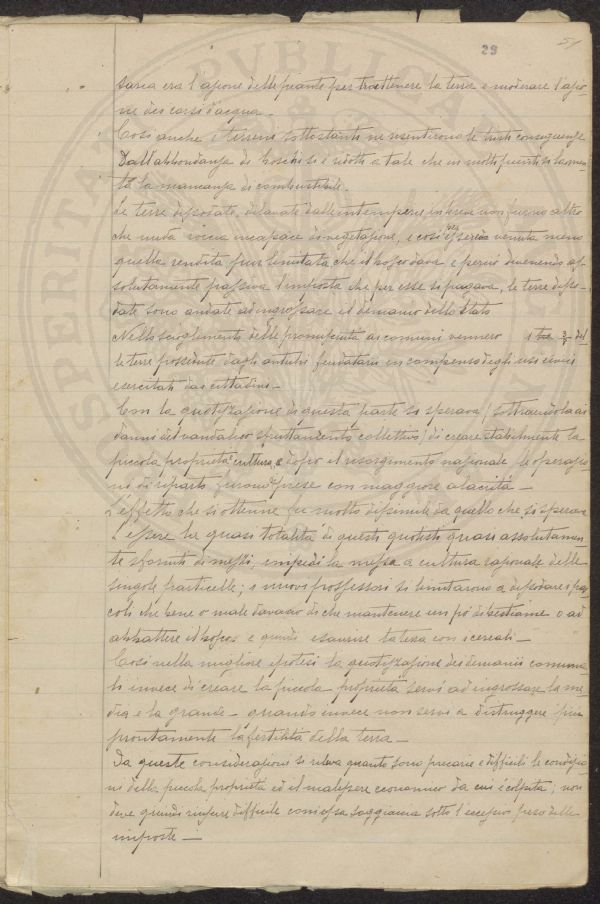 29
51
saria era l'azione delle piante per trattenere la terra e moderare l'azio
ne dei corsi d'acqua.
Così anche i terreni sottostanti ne risentirono le tristi conseguenze
Dall'abbondanza di boschi si è ridotti a tale che in molti punti si lamen
ta la mancanza di combustibile.
Le terre dissodate, dilavate dalle intemperie non furono altro
che nuda roccia incapace di vegetazione, e così per essere venuta meno
quella rendita pur limitata che il bosco dava e perciò divenendo as
solutamente passiva l'imposta che per esse si pagava, le terre disso
date sono andate ad ingrossare il demanio dello Stato
Nello scioglimento delle promiscuità ai comuni vennero i 3/4 del
le terre possedute dagli antichi feudatari in compenso degli usi civici
esercitati dai cittadini.
Con la quotizzazione di questa parte si sperava (sottraendola ai
danni del vandalico sfruttamento collettivo) di creare stabilmente la
piccola proprietà e cultura, e dopo il risorgimento nazionale le operazio
ni di riparto furono prese con maggiore alacrità —
L'effetto che si ottenne fu molto dissimile da quello che si sperava
L'essere la quasi totalità di questi quotisti quasi assolutamen
te sforniti di mezzi, impedì la messa a cultura razionale delle
singole particelle; i nuovi possessori si limitarono a dissodare i pas
coli che bene o male davano di che mantenere un pò di bestiame o ad
abbattere il bosco e quindi esaurire la terra con i cereali —
Così nella migliore ipotesi la quotizzazione dei demanii comuna
li invece di creare la piccola proprietà servì ad ingrossare la me
dia e la grande — quando invece non servì a distruggere più
prontamente la fertilità della terra —
Da queste considerazioni si rileva quanto sono precarie e difficili le condizio
ni della piccola proprietà ed il malessere economico da cui è colpita; non
deve quindi riuscire difficile com'essa soggiaccia sotto l'eccessivo peso delle
imposte —